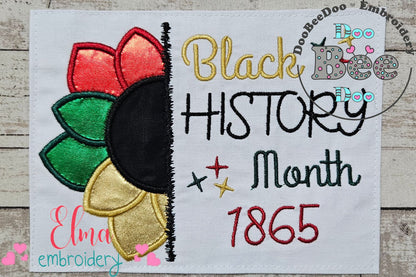 DooBeeDoo - Embroider
Doo
Bee
Doo
Black
HISTORY
Month
1865
Elma
embroidery